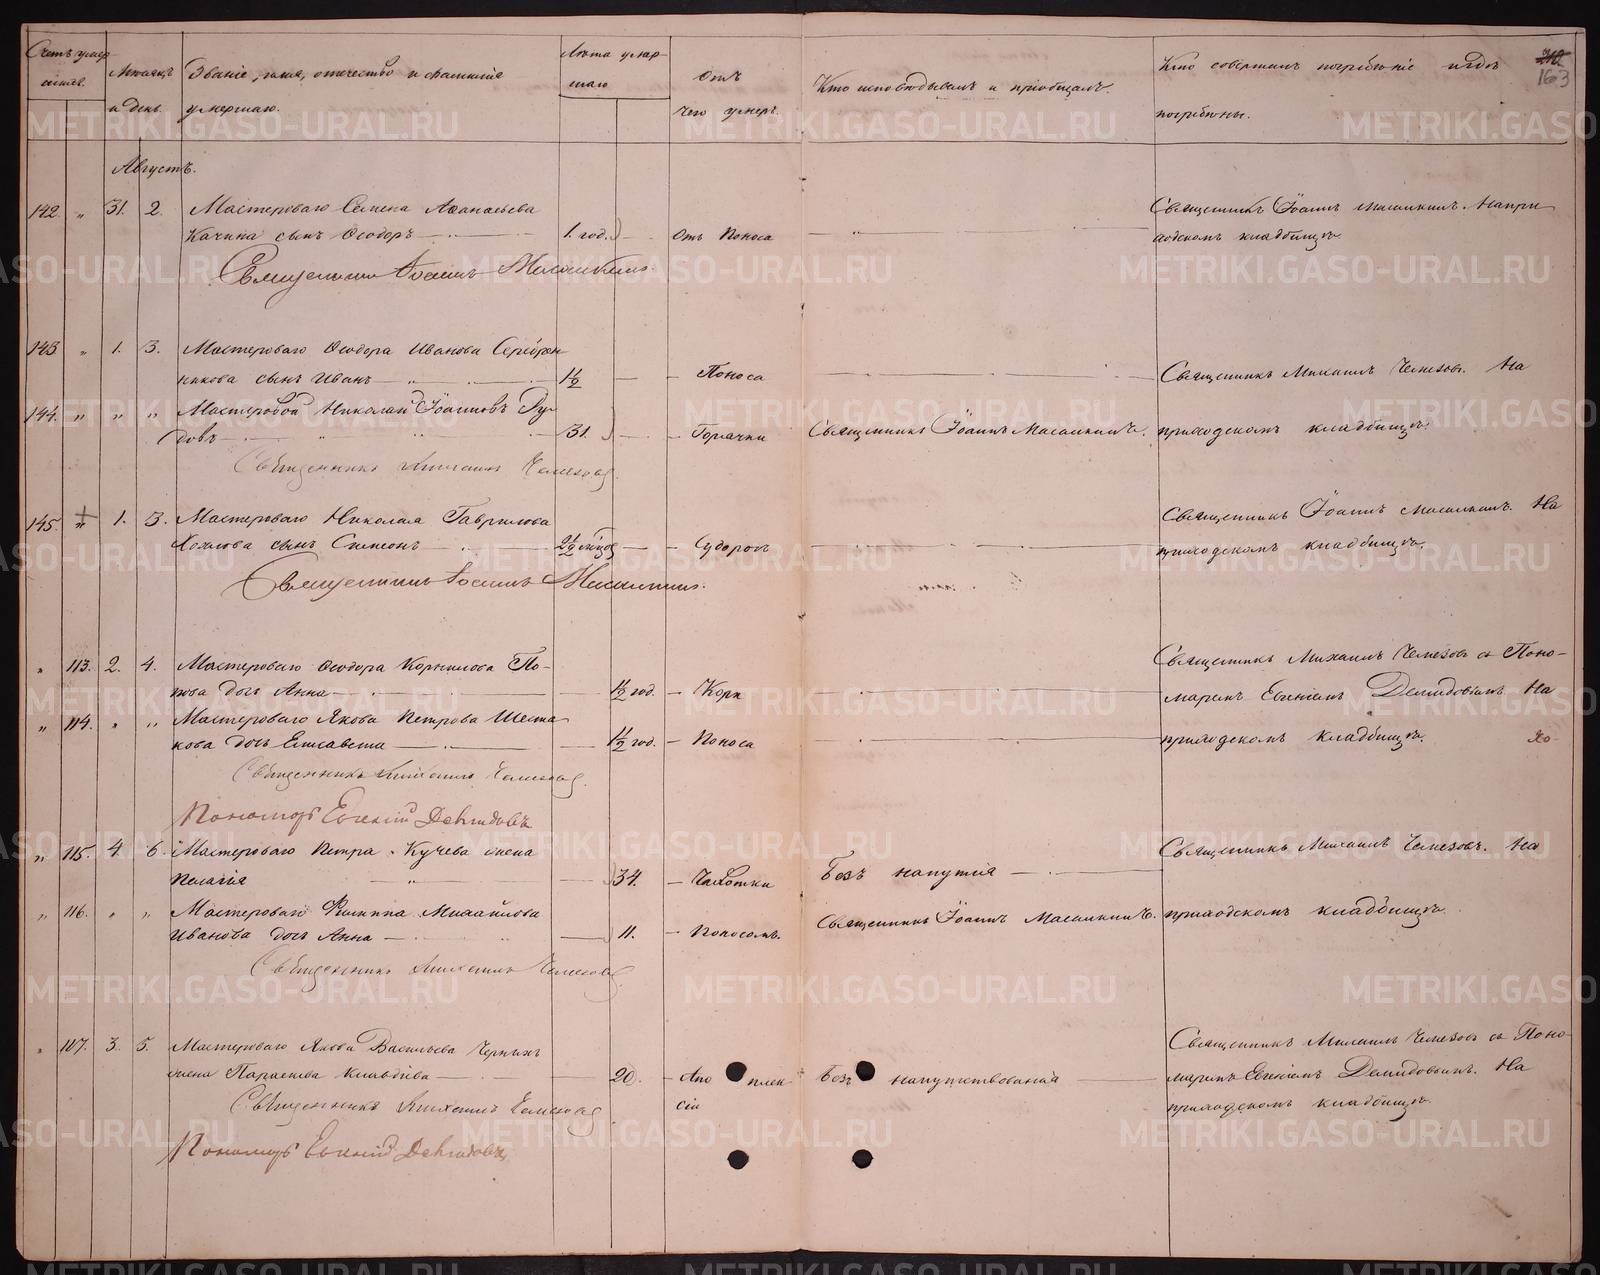 Счетъ умер-
шихъ.
Мѣсяцъ
и день.
Званіе, имя, отчество и фамилія
умершаго.
Лѣта умер-
шаго
Отъ
чего умеръ.
Кто исповѣдывалъ и пріобщалъ.
Кто совершалъ погребеніе и гдѣ
погребены.
163
Августъ.
142. „ 31. 2. Мастероваго Семена Аѳанасьева
Качина сынъ Ѳеодоръ — 1. год. — Отъ Поноса — „ — Священникъ Іоаннъ Масалкинъ. На при-
ходскомъ кладбищѣ.
Священникъ Іоаннъ Масалкинъ.
143 „ 1. 3. Мастероваго Ѳеодора Иванова Серебрен-
никова сынъ Иванъ — 1½ — Поноса — Священникъ Михаилъ Чемезовъ. На
144. „ „ „ Мастеровой Николай Іоанновъ Ру-
довъ — 31. — Горячки Священникъ Іоаннъ Масалкинъ. приходскомъ кладбищѣ.
Священникъ Михаилъ Чемезовъ
145. „ 1. 3. Мастероваго Николая Гаврилова
Хохлова сынъ Симеонъ — 2½ мѣсяц — Судорогъ — Священникъ Іоаннъ Масалкинъ. На
приходскомъ кладбищѣ.
Священникъ Іоаннъ Масалкинъ.
„ 113. 2. 4. Мастероваго Ѳеодора Корнилова По-
пова дочь Анна — 1½ год. — Кори — Священникъ Михаилъ Чемезовъ съ Поно-
маремъ Евгеніемъ Демидовымъ. На
„ 114. „ „ Мастероваго Якова Петрова Шеста-
кова дочь Елисавета — 1½ год. — Поноса — приходскомъ кладбищѣ.
Священникъ Михаилъ Чемезовъ
Пономарь Евгеній Демидовъ
„ 115. 4. 6. Мастероваго Петра Кучева жена
Пелагія „ — 34. — Чахотки Безъ напутія — Священникъ Михаилъ Чемезовъ. На
„ 116. „ „ Мастероваго Филиппа Михайлова
Иванова дочь Анна — 11. — Поносомъ. Священникъ Іоаннъ Масалкинъ. приходскомъ кладбищѣ.
Священникъ Михаилъ Чемезовъ
„ 117. 3. 5. Мастероваго Якова Васильева Черныхъ
жена Параскева Клавдіева — 20. — Апоплек-
сіи Безъ напутствованія — Священникъ Михаилъ Чемезовъ съ Поно-
маремъ Евгеніемъ Демидовымъ. На
приходскомъ кладбищѣ.
Священникъ Михаилъ Чемезовъ
Пономарь Евгеній Демидовъ
METRIKI.GASO-URAL.RU